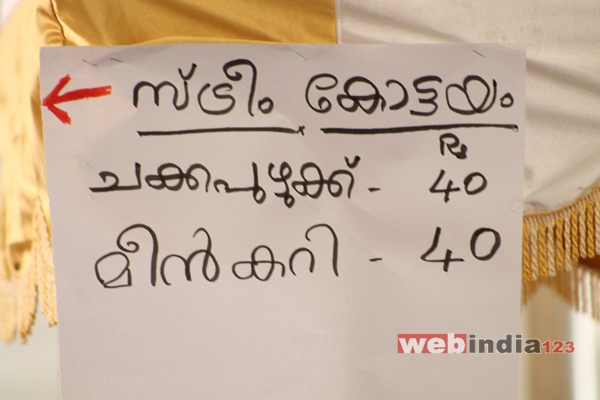 സ്ട്രീം കോട്ടയം
Rs
ചക്കപുഴുക്ക് - 40
മീൻ കറി - 40
webindia123